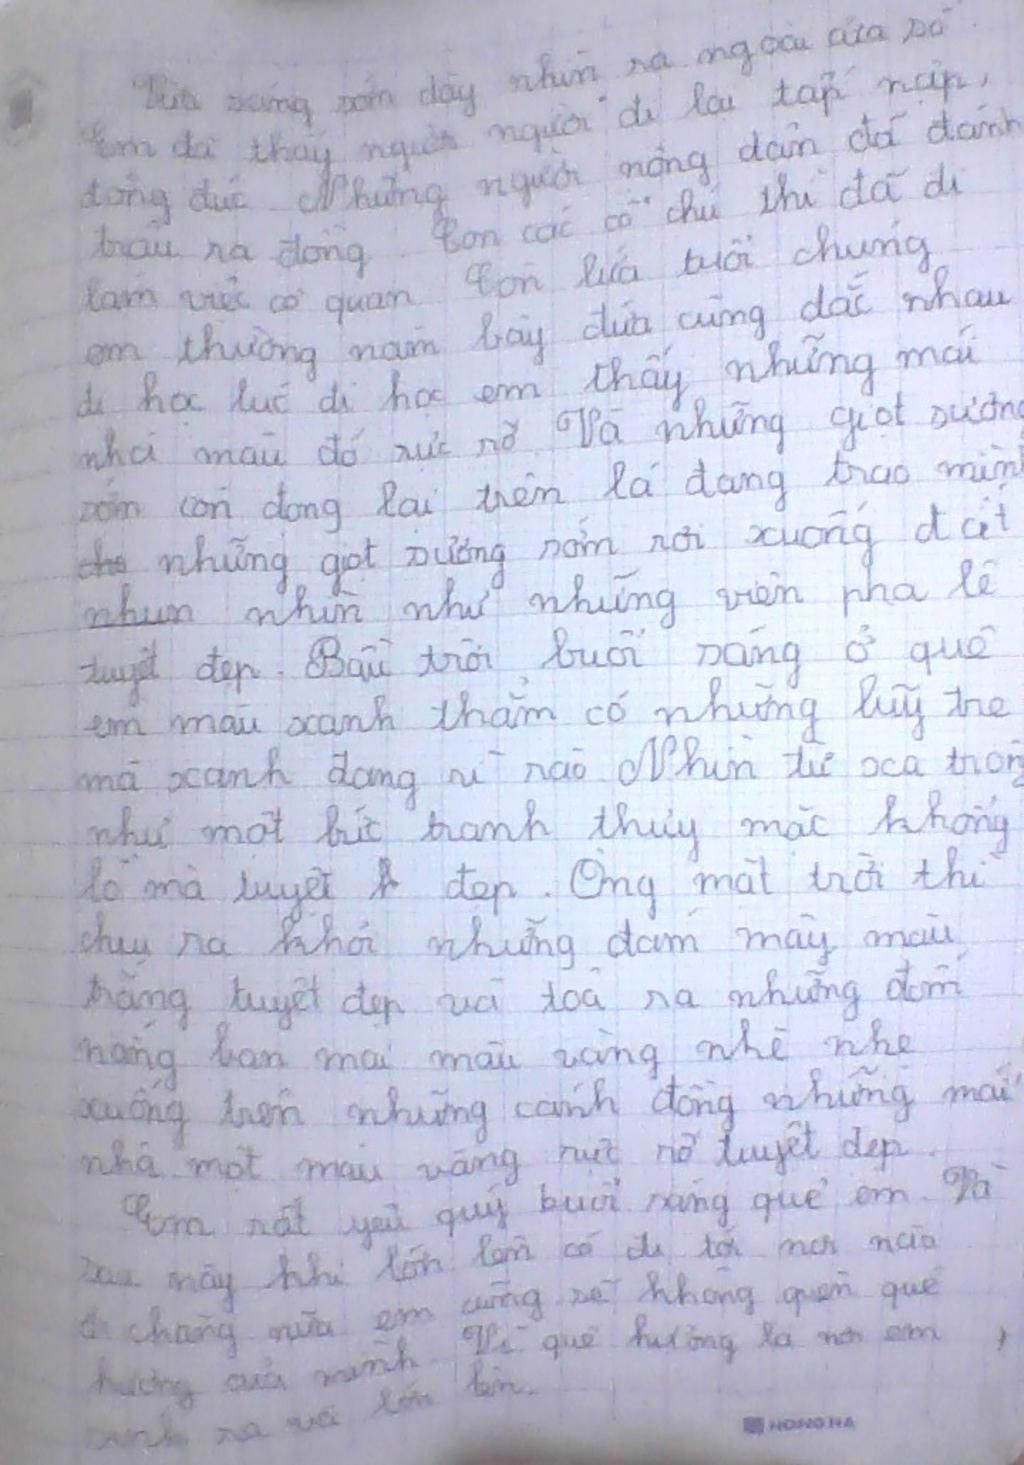 sáng sớm dậy nhìn ra ngoài cửa sổ
Em đã thấy người người đi lại tấp nập,
đông đúc Những người nông dân đã đánh
trâu ra đồng. Còn các cô chú thì đã đi
làm việc cơ quan Còn lứa tuổi chúng
em thường năm bảy đứa cùng dắt nhau
đi học lúc đi học em thấy những mái
nhà màu đỏ rực rỡ. Và những giọt sương
sớm còn đọng lại trên lá đang trao mình
cho những giọt sương sớm rơi xuống đất
nhun nhìn như những viên pha lê
tuyệt đẹp. Bầu trời buổi sáng ở quê
em màu xanh thẳm có những luỹ tre
mà xanh đang rì rào Nhìn từ xa trông
như một bức tranh thủy mặc khổng
lồ mà tuyệt đẹp. Ông mặt trời thì
chui ra khỏi những đám mây màu
trắng tuyệt đẹp và toả ra những đốm
nắng ban mai màu vàng nhè nhẹ
xuống trên những cánh đồng những mái
nhà một màu vàng rực rỡ tuyệt đẹp.
Em rất yêu quý buổi sáng quê em. Và
sau này khi lớn lên có đi tới nơi nào
đi chăng nữa em cũng sẽ không quên quê
hương của mình. Vì quê hương là nơi em
sinh ra và lớn lên.
HONG HA